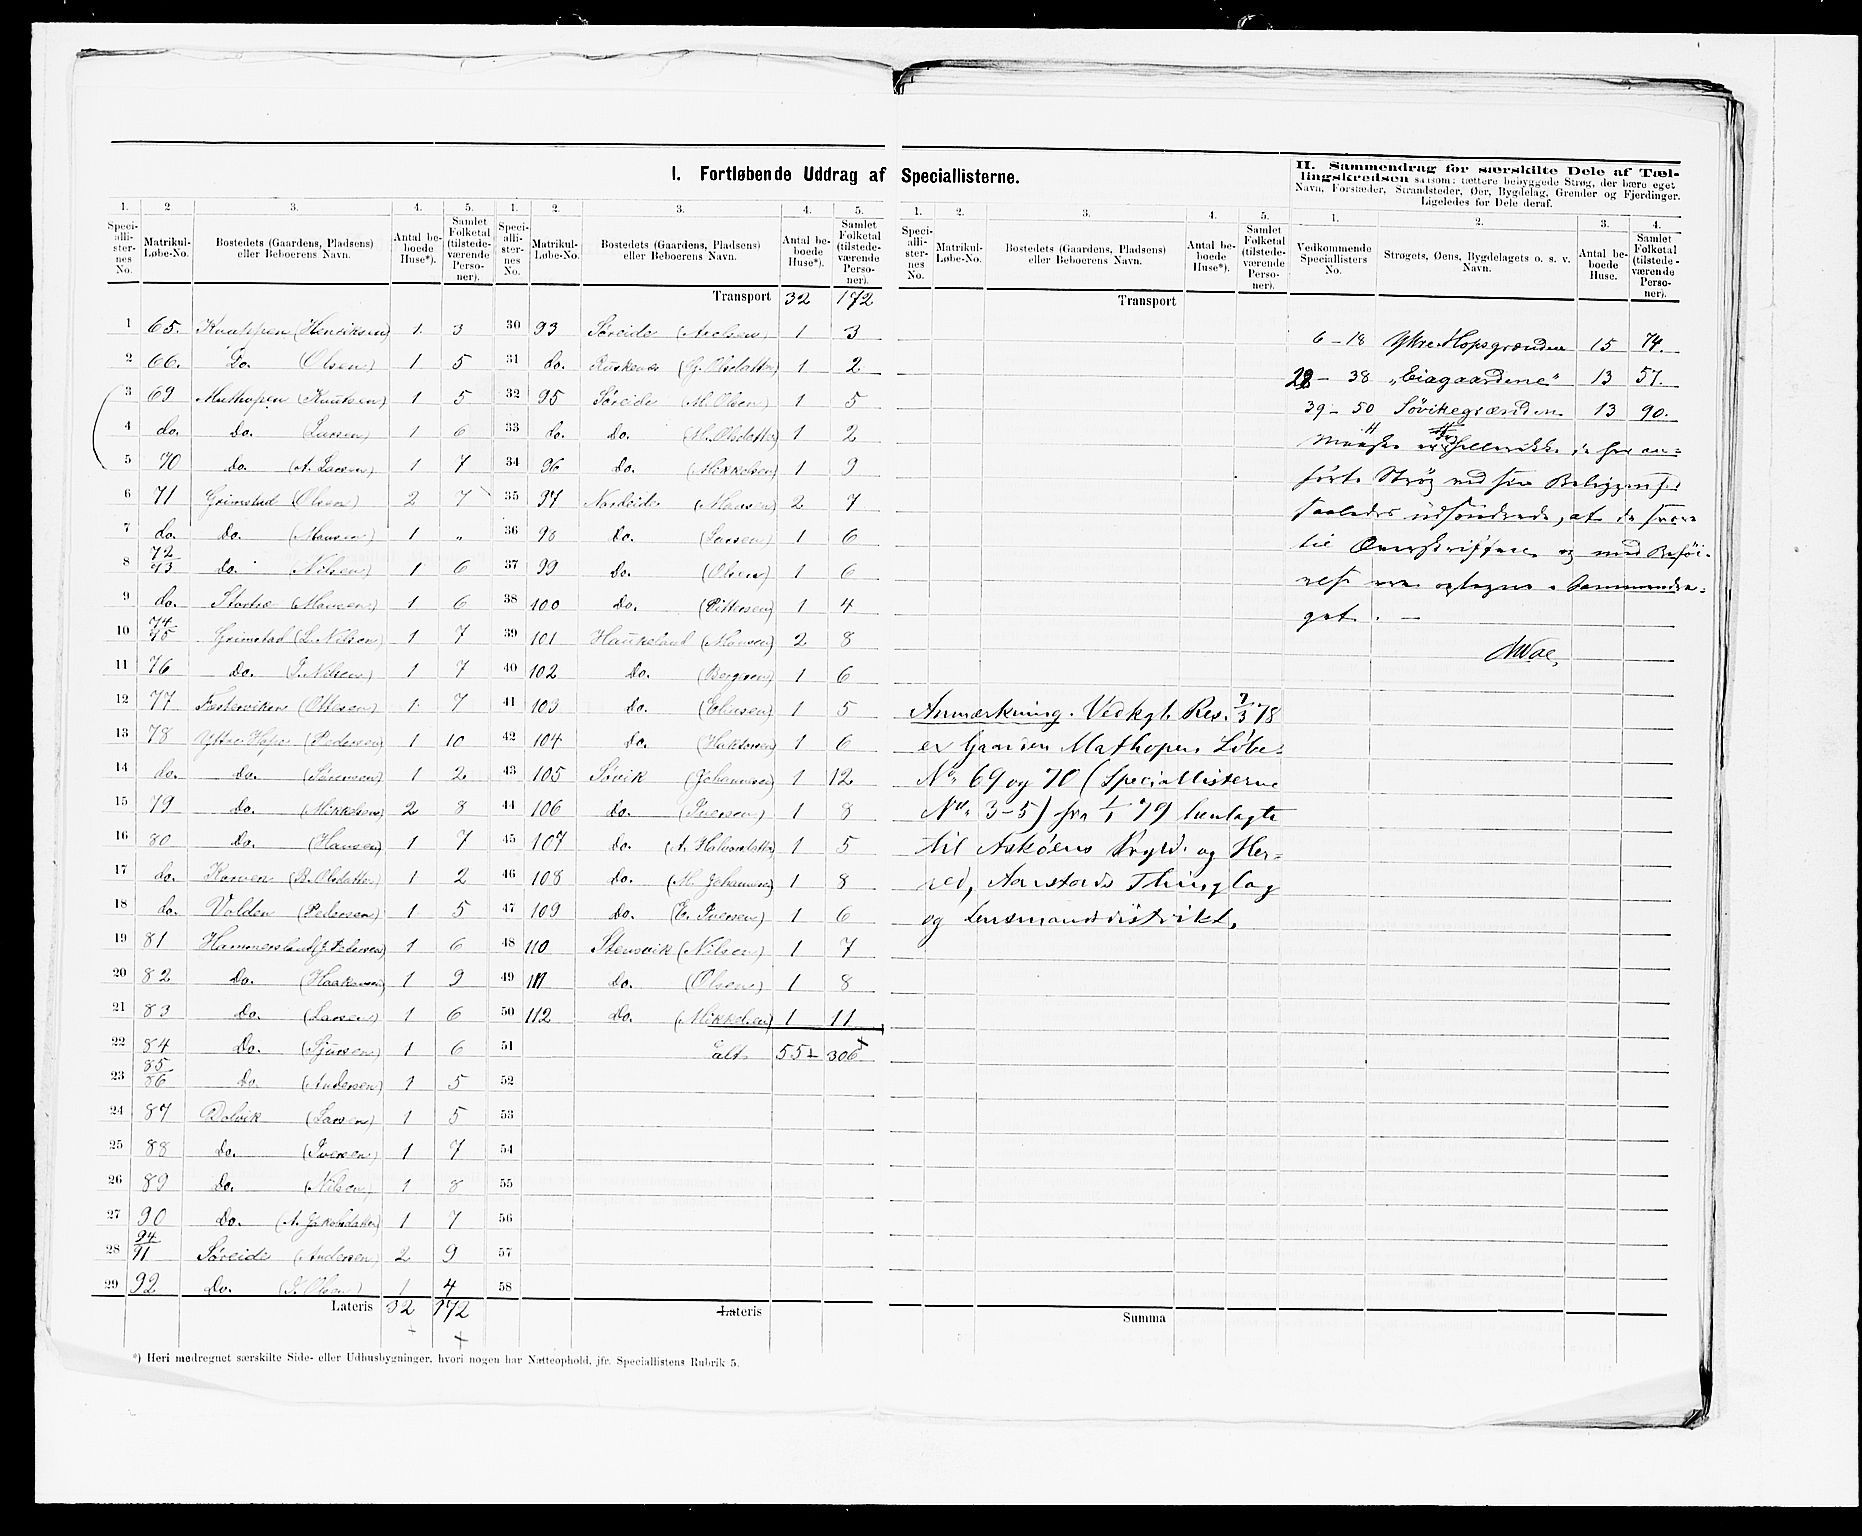 I. Fortløbende Uddrag af Speciallisterne.
1. 2. 3. 4. 5. 1. 2. 3. 4. 5.
Speciallisternes No. Matrikul-Løbe-No. Bostedets (Gaardens, Pladsens) eller Beboerens Navn. Antal beboede Huse*). Samlet Folketal (tilstedeværende Personer). Speciallisternes No. Matrikul-Løbe-No. Bostedets (Gaardens, Pladsens) eller Beboerens Navn. Antal beboede Huse*). Samlet Folketal (tilstedeværende Personer).
Transport 32 172
1 65. Knappen (Henriksen) 1 3 30 93 Søreide (Axelsen) 1 3
2 66. Do. (Olsen) 1 5 31 do. (G. Olsdatter) 1 2
3 69 Mathopen (Knutsen) 1 5 32 95 Søreide (M. Olsen) 1 5
4 do. Do. (Larsen) 1 6 33 do. Do. (M. Olsdatter) 1 2
5 70 do. (A. Larsen) 1 7 34 96 Do. (Mikkelsen) 1 9
6 71 Grimstad (Olsen) 2 7 35 97 Nordeide (Monsen) 2 7
7 do. Do. (Monsen) 1 „ 36 98 Do. (Larsen) 1 6
8 72/73 do. (Nilsen) 1 6 37 99 Do. (Olsen) 1 6
9 do. (Monsen) 1 6 38 100 do. (Pettersen) 1 4
10 74/75 Grimstad (L. Nilsen) 1 7 39 101 Haukeland (Monsen) 2 8
11 76 Do. (J. Nilsen) 1 7 40 102 Do. (Bergesen) 1 6
12 77 (Ottesen) 1 7 41 103 do. 1 5
13 78 Yttre Hope (Pedersen) 1 10 42 104 do. 1 6
14 do. do. (Sørensen) 1 2 43 105 Søvik (Johannesen) 1 12
15 79 Do. (Mikkelsen) 2 8 44 106 do. (Iversen) 1 8
16 80 do. (Hansen) 1 7 45 107 do. 1 5
17 do. (B. Olsdatter) 1 2 46 108 do. 1 8
18 do. Volden (Pedersen) 1 5 47 109 Do. (E. Iversen) 1 6
19 81 Hammersland 1 6 48 110 Stensvik (Nilsen) 1 7
20 82 Do. (Haaksen) 1 9 49 111 do. (Olsen) 1 8
21 83 Do. (Larsen) 1 6 50 112 Do. (Mikkelsen) 1 11
22 84 Do. (Sjursen) 1 6 51 Ialt 55 306
23 85/86 Do. (Andersen) 1 5 52
24 87 Dolvik (Larsen) 1 5 53
25 88 do. (Iversen) 1 7 54
26 89 do. (Nilsen) 1 8 55
27 90 do. (A. Jakobsdatter) 1 7 56
28 94/91 Søreide (Andersen) 2 9 57
29 92 Do. (J. Olsen) 1 4 58
Lateris 32 172 Lateris
*) Heri medregnet særskilte Side- eller Udhusbygninger, hvori nogen har Natteophold, jfr. Speciallistens Rubrik 5.
1. 2. 3. 4. 5.
Speciallisternes No. Matrikul-Løbe-No. Bostedets (Gaardens, Pladsens) eller Beboerens Navn. Antal beboede Huse*). Samlet Folketal (tilstedeværende Personer).
Transport
Anmærkning. Vedkgl. Res. 7/3 78
er Gaarden Mathopen Løbe-
No. 69 og 70 (Speciallisterne
No. 3-5) fra 1/1 79 henlagte
til Askøens Prgld. og Her-
red, Aarstads Thinglag
og Lensmandsdistrikt.
Summa
II. Sammendrag for særskilte Dele af Tæl-
lingskredsen saasom: tættere bebyggede Strøg, der bære eget
Navn, Forstæder, Strandsteder, Øer, Bygdelag, Grender og Fjerdinger.
Ligeledes for Dele deraf.
1. 2. 3. 4.
Vedkommende Speciallisters No. Strøgets, Øens, Bygdelagets o. s. v. Navn. Antal beboede Huse. Samlet Folketal (tilstedeværende Personer).
6 – 18 Ytre Hopsgrænden 15 74.
28 – 38 13 57.
39 – 50 Søvikegrænden 13 90.
Maaske heller ikke de her an-
førte Strøg ved sin Beliggenhed
saaledes udsondrede, at de svare
til Overskriften og med Beføi-
else optagne i Sammendra-
get. –